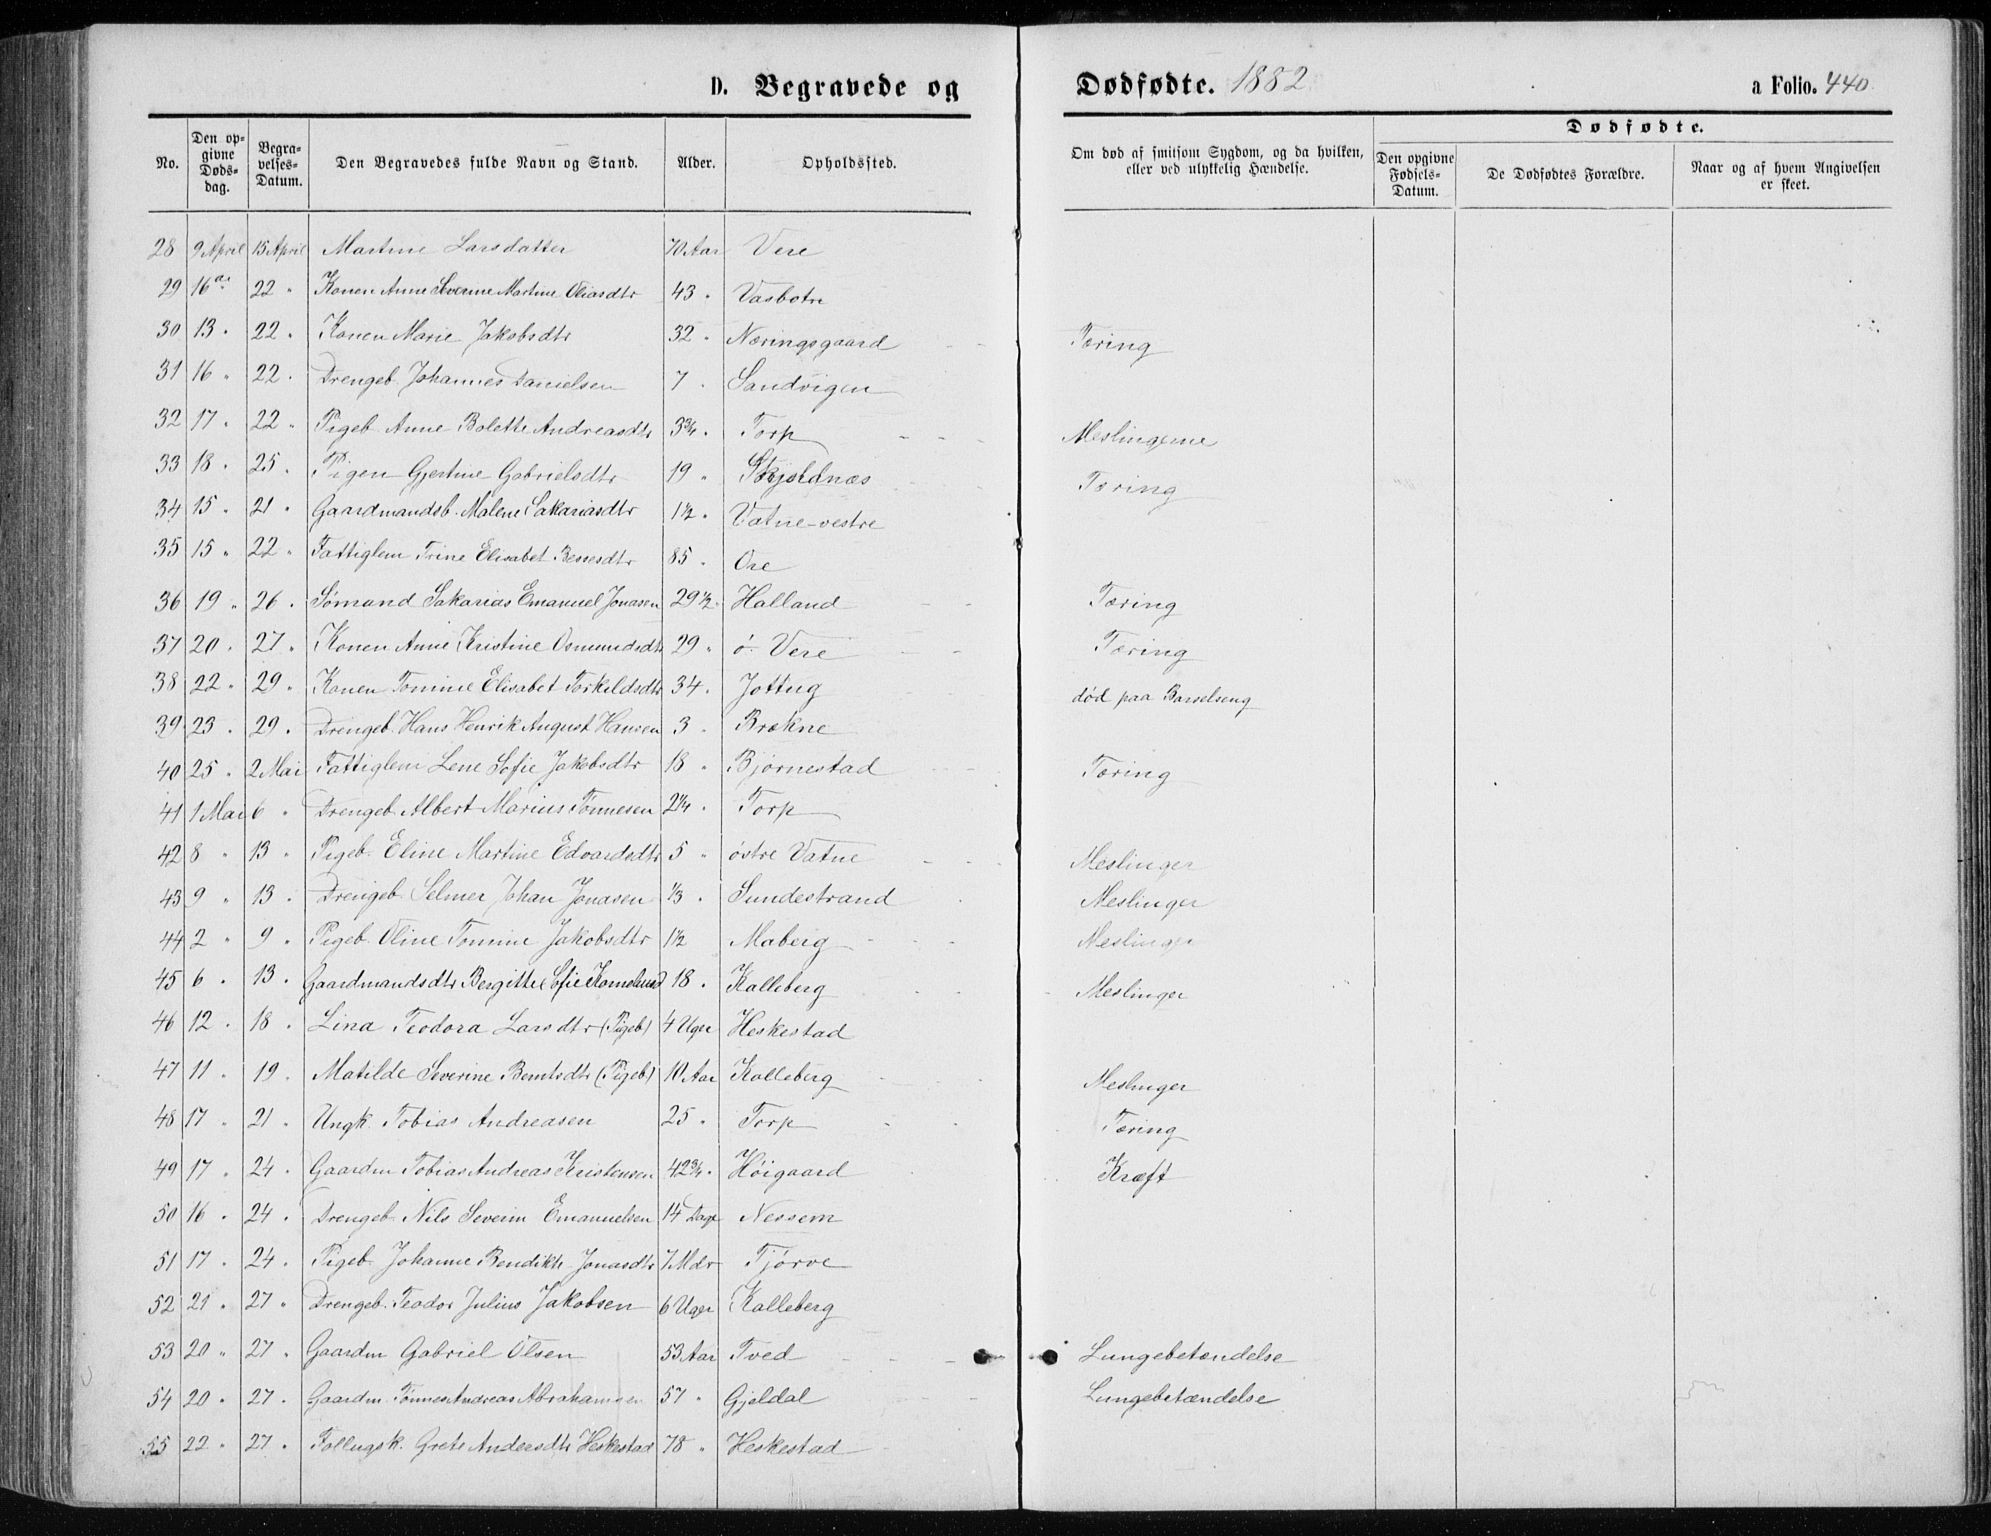 D. Begravede og Dødfødte. 1882 a Folio. 440.
No. Den opgivne Dødsdag. Begravelses-Datum. Den Begravedes fulde Navn og Stand. Alder. Opholdssted. Om død af smitsom Sygdom, og da hvilken, eller ved ulykkelig Hændelse. Dødfødte. Den opgivne Fødsels-Datum. De Dødfødtes Forældre. Naar og af hvem Angivelsen er skeet.
28 9 April 15 April Martine Larsdatter 70 Aar Vere
29 16 22 " Konen Anne Severine Martine Eliasdtr 43 " Vasbotn
30 13 " 22 " Konen Marie Jakobsdtr 32 " Næringsgaard Tæring
31 16 " 22 " Drengeb. Johannes Danielsen 7 " Sandvigen
32 17 " 22 " Pigeb. Anne Bolette Andreasdtr 3¾ " Torp Meslingerne
33 18 " 25 " Pigen Gjertine Gabrielsdtr 19 " Skjoldnæs Tæring
34 15 " 21 " Gaardmandsb. Malene Sakariasdtr 1½ " Vatne-vestre
35 15 " 22 " Fattiglem Trine Elisabet Bessesdtr 85 " Ore
36 19 " 26 " Sømand Sakarias Emanuel Jonasen 29½ " Halland Tæring
37 20 " 27 " Konen Anne Kristine Osmundsdtr 29 " ø. Vere Tæring
38 22 " 29 " Konen Tomine Elisabet Torkildsdtr 34 " Jottug død paa Barselseng
39 23 " 29 " Drengeb. Hans Henrik August Hansen 3 " Brekne
40 25 " 2 Mai Fattiglem Lene Sofie Jakobsdtr 18 " Bjørnestad Tæring
41 1 Mai 6 " Drengeb. Albert Marius Tønnesen 2¼ " Torp
42 8 " 13 " Pigeb. Eline Martine Edvardsdtr 5 " østre Vatne Meslinger
43 9 " 13 " Drengeb. Selmer Johan Jonasen ⅓ " Sundestrand Meslinger
44 2 " 9 " Pigeb. Oline Tomine Jakobsdtr 1½ Maberg Meslinger
45 6 " 13 " Gaardmandsdtr Bergitte Sofie 18 " Kalleberg Meslinger
46 12 " 18 " Lina Teodora Larsdtr (Pigeb) 4 Uger Heskestad
47 11 " 19 " Matilde Severine Berntsdtr (Pigeb) 10 Aar Kalleberg Meslinger
48 17 " 21 " Ungk. Tobias Andreasen 25 " Torp Tæring
49 17 " 24 " Gaardm Tobias Andreas Kristensen 42¾ " Høigaard Kræft
50 16 " 24 " Drengeb Nils Severin Emanuelsen 14 Dage Nessem
51 17 " 24 " Pigeb. Johanne Bendikte Jonasdtr 7 Mdr Tjørve
52 21 " 27 " Drengeb. Teodor Julius Jakobsen 6 Uger Kalleberg
53 20 " 27 " Gaardm Gabriel Olsen 53 Aar Tved Lungebetændelse
54 20 " 27 " Gaardm. Tønnes Andreas Abrahamsen 57 " Gjeldal Lungebetændelse
55 22 " 27 " Føllugsk. Grete Andersdtr Heskestad 78 " Heskestad